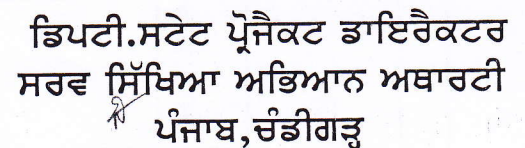 ਡਿਪਟੀ.ਸਟੇਟ ਪ੍ਰੋਜੈਕਟ ਡਾਇਰੈਕਟਰ
ਸਰਵ ਸਿੱਖਿਆ ਅਭਿਆਨ ਅਥਾਰਟੀ
ਪੰਜਾਬ,ਚੰਡੀਗੜ੍ਹ